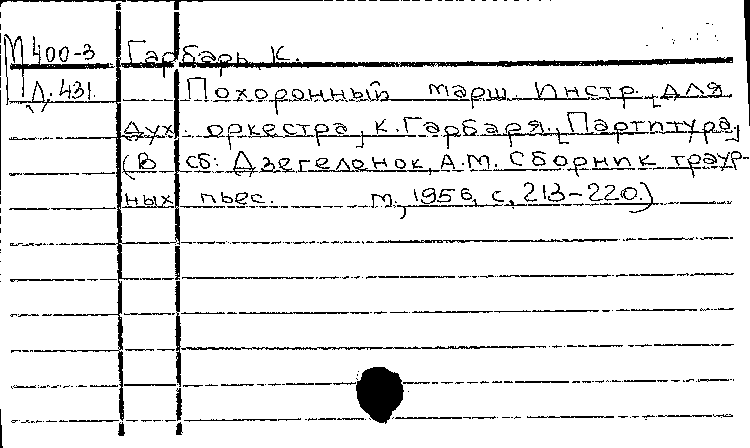 М 400-3 Гарбарь, К.
Л. 431 Похоронный марш. Инстр. [для
дух. оркестра] К. Гарбаря. [Партитура]
(В сб: Дзегеленок, А.М. Сборник траур-
ных пьес. М., 1956, с. 213-220.)